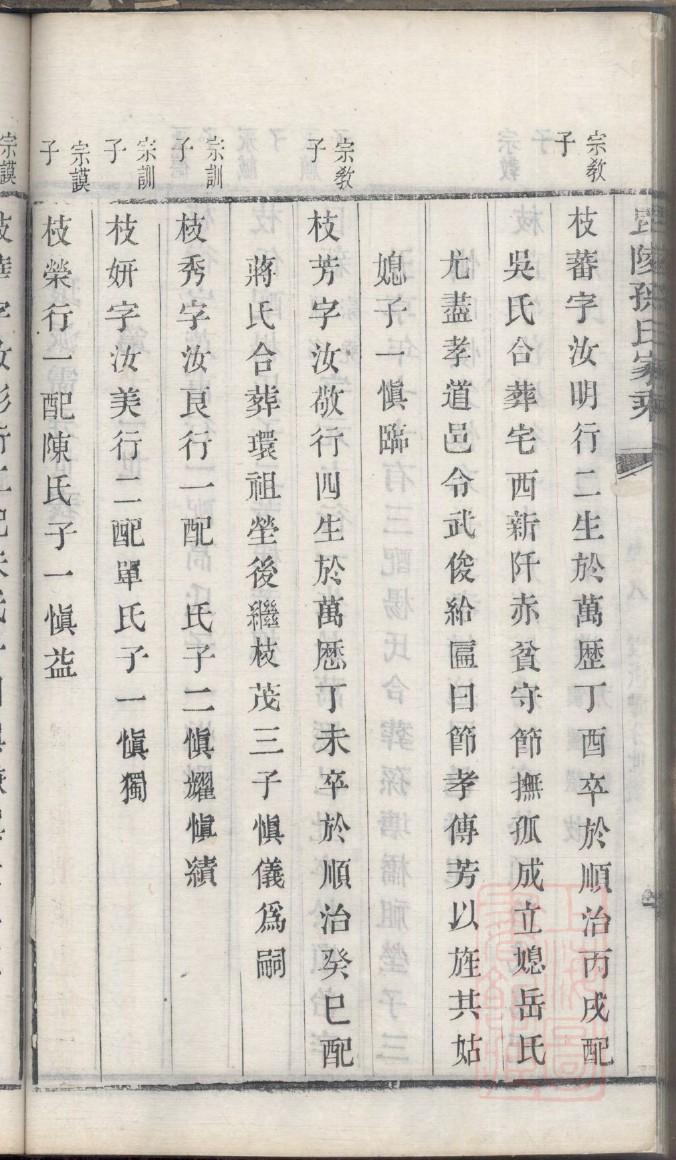 毘陵孫氏家乘
宗教子
枝蕃字汝明行二生於萬歷丁酉卒於順治丙戌配
吳氏合葬宅西新阡赤貧守節撫孤成立媳岳氏
尤盡孝道邑令武俊給匾曰節孝傳芳以旌其姑
媳子一慎臨
宗教子
枝芳字汝敬行四生於萬歷丁未卒於順治癸巳配
蔣氏合葬環祖塋後繼枝茂三子慎儀爲嗣
宗訓子
枝秀字汝良行一配 氏子二慎耀慎績
宗訓子
枝妍字汝美行二配單氏子一慎獨
宗謨子
枝榮行一配陳氏子一慎益
宗謨